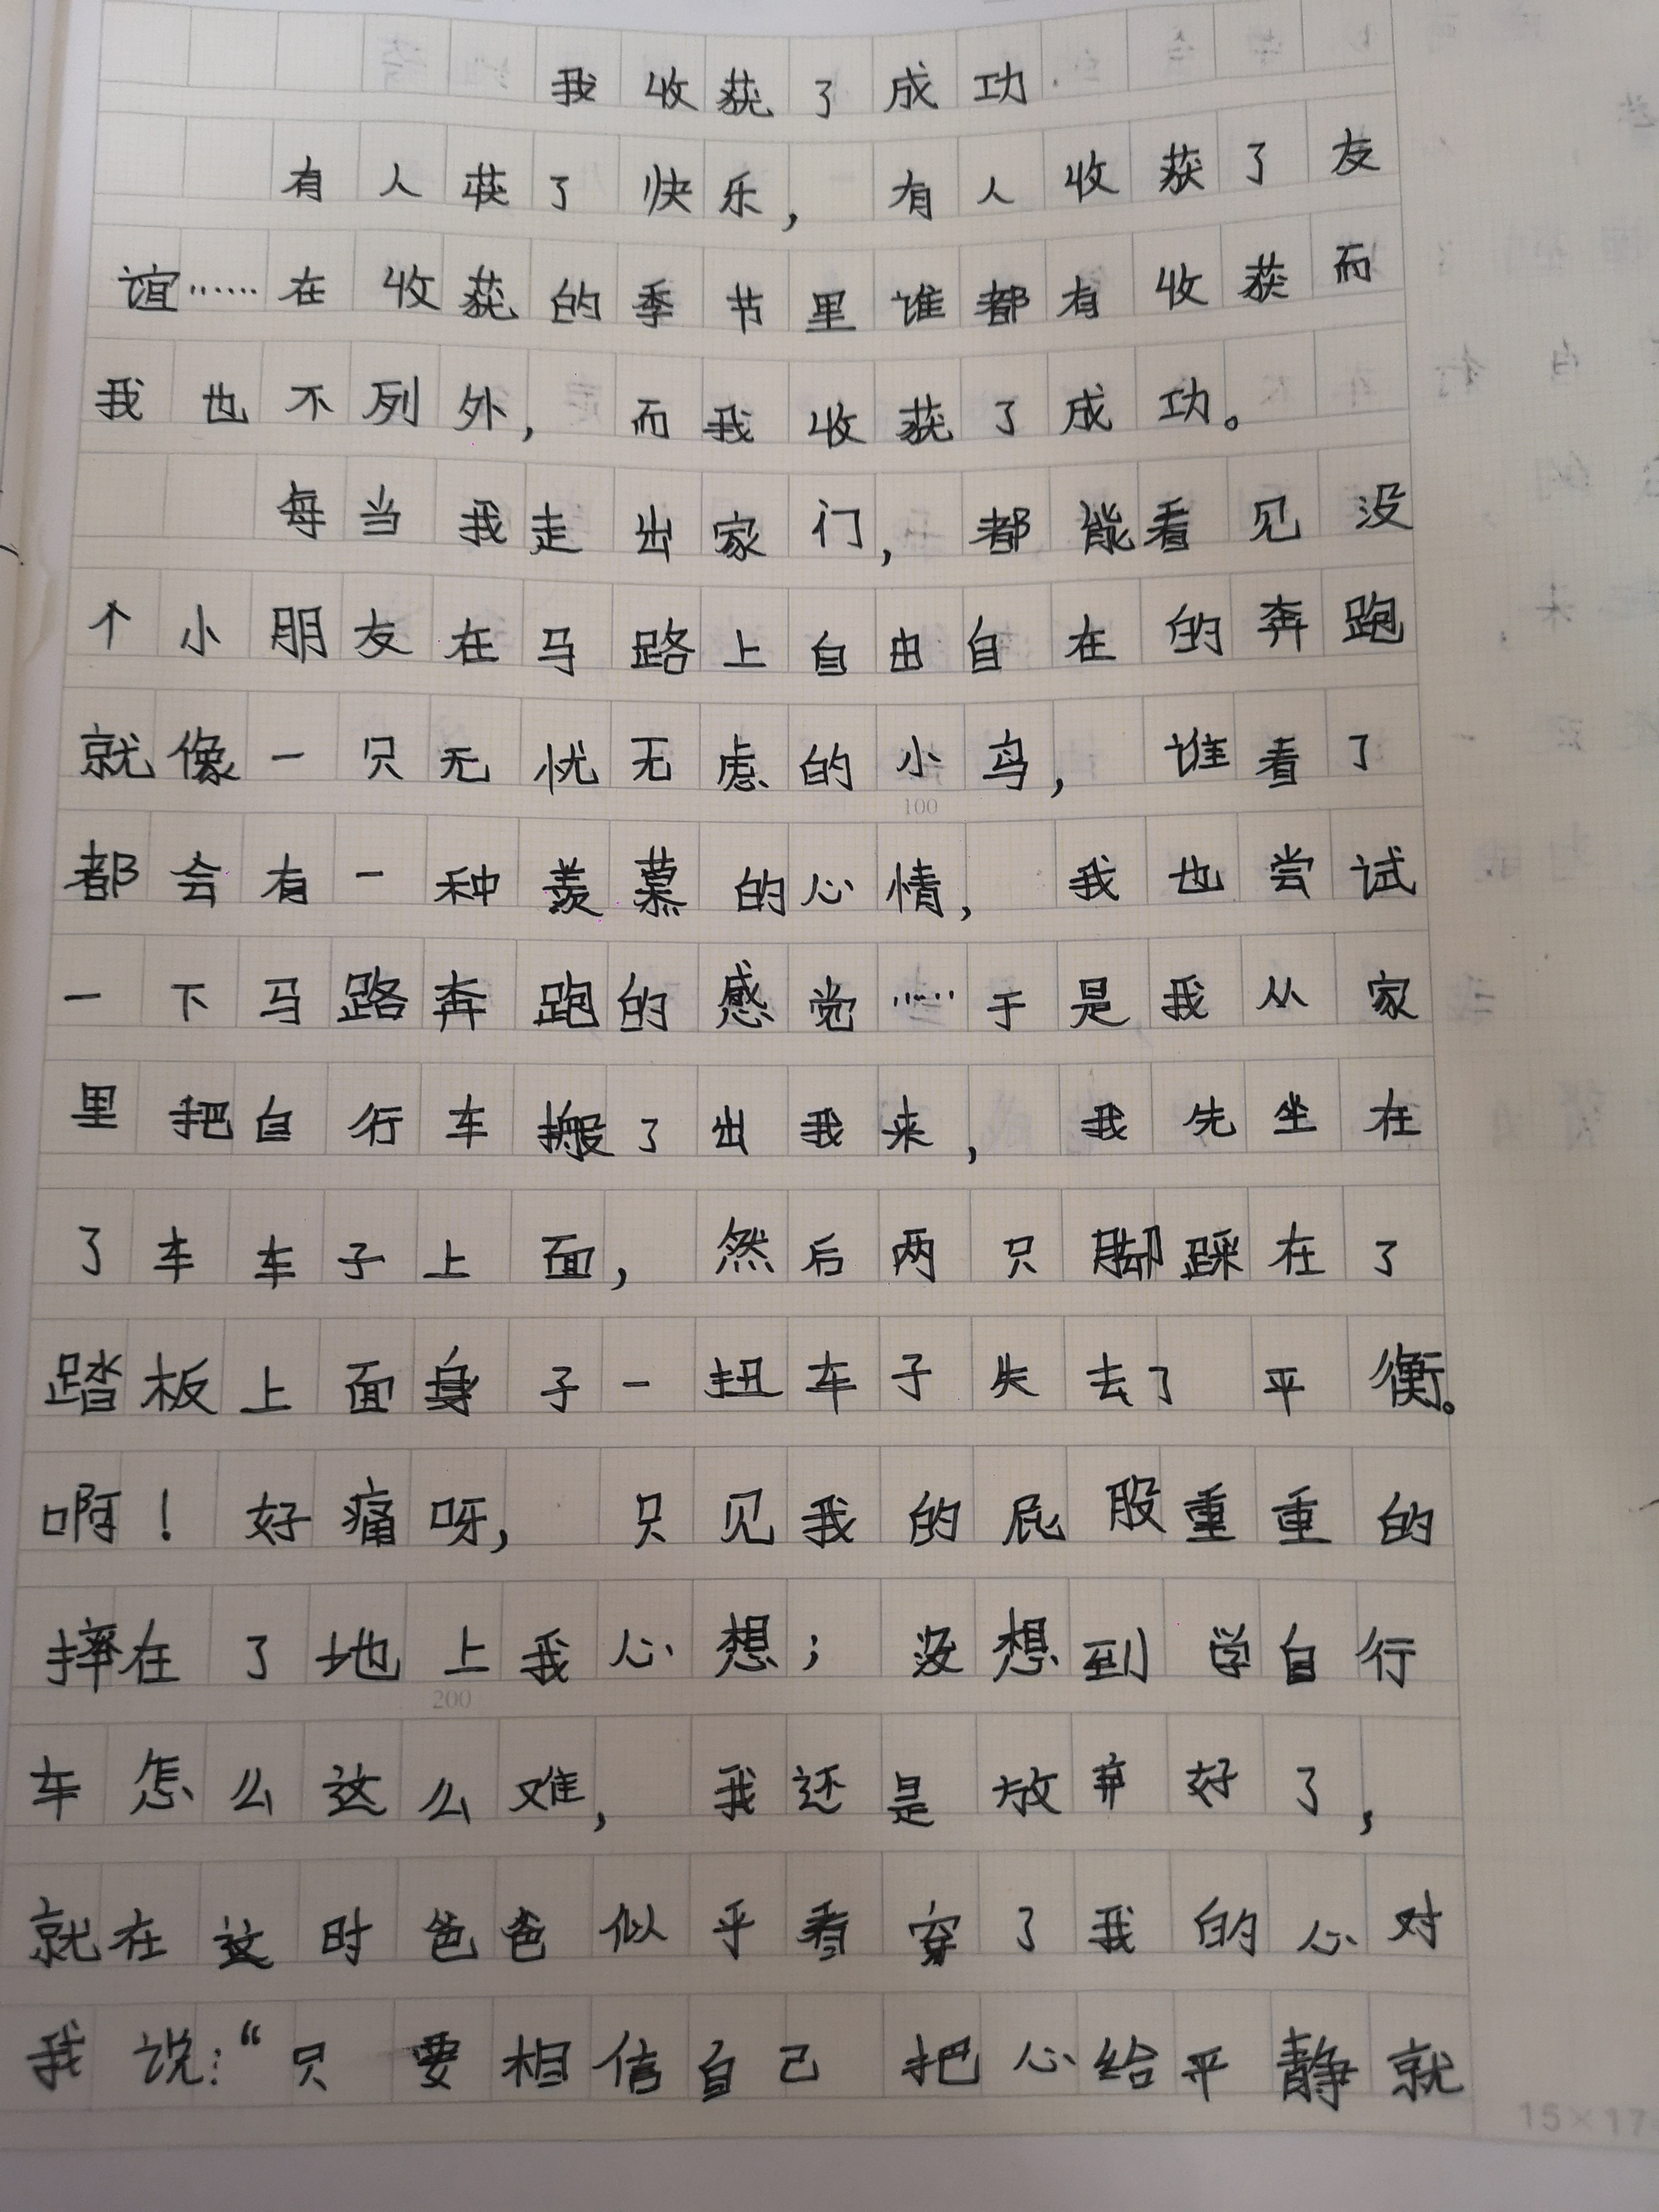 我收获了成功
有人获了快乐，有人收获了友
谊……在收获的季节里谁都有收获而
我也不列外，而我收获了成功。
每当我走出家门，都能看见没
个小朋友在马路上自由自在的奔跑
就像一只无忧无虑的小鸟，谁看了
都会有一种羡慕的心情，我也尝试
一下马路奔跑的感觉……于是我从家
里把自行车搬了出我来，我先坐在
了车车子上面，然后两只脚踩在了
踏板上面身子一扭车子失去了平衡。
啊！好痛呀，只见我的屁股重重的
摔在了地上我心想；没想到学自行
车怎么这么难，我还是放弃好了，
就在这时爸爸似乎看穿了我的心对
我说：“只要相信自己把心给平静就
100
200
15×17